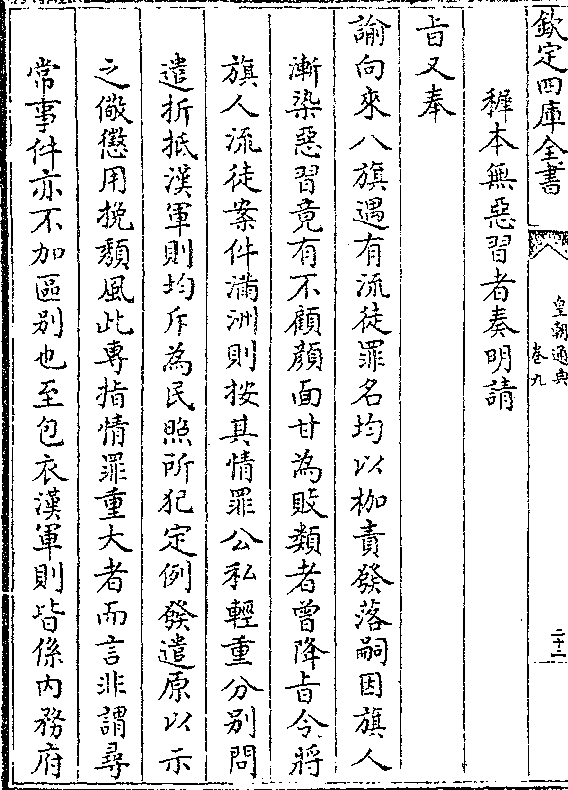 欽定四庫全書
皇朝通典
卷九
二十二
穉本無惡習者奏明請
旨又奉
諭向來八旗遇有流徒罪名均以枷責發落嗣因旗人
漸染惡習竟有不顧顏面甘為敗類者曾降旨令將
旗人流徒案件滿洲則按其情罪公私輕重分别問
遣折抵漢軍則均斥為民照所犯定例發遣原以示
之儆懲用挽頽風此專指情罪重大者而言非謂尋
常事件亦不加區别也至包衣漢軍則皆係内務府